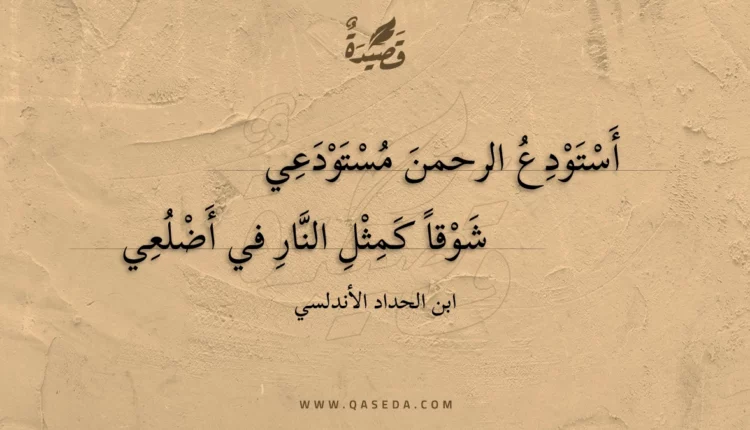 قَصِيدَةٌ
أَسْتَوْدِعُ الرحمنَ مُسْتَوْدَعِي
شَوْقاً كَمِثْلِ النَّارِ في أَضْلُعِي
ابن الحداد الأندلسي
WWW.QASEDA.COM